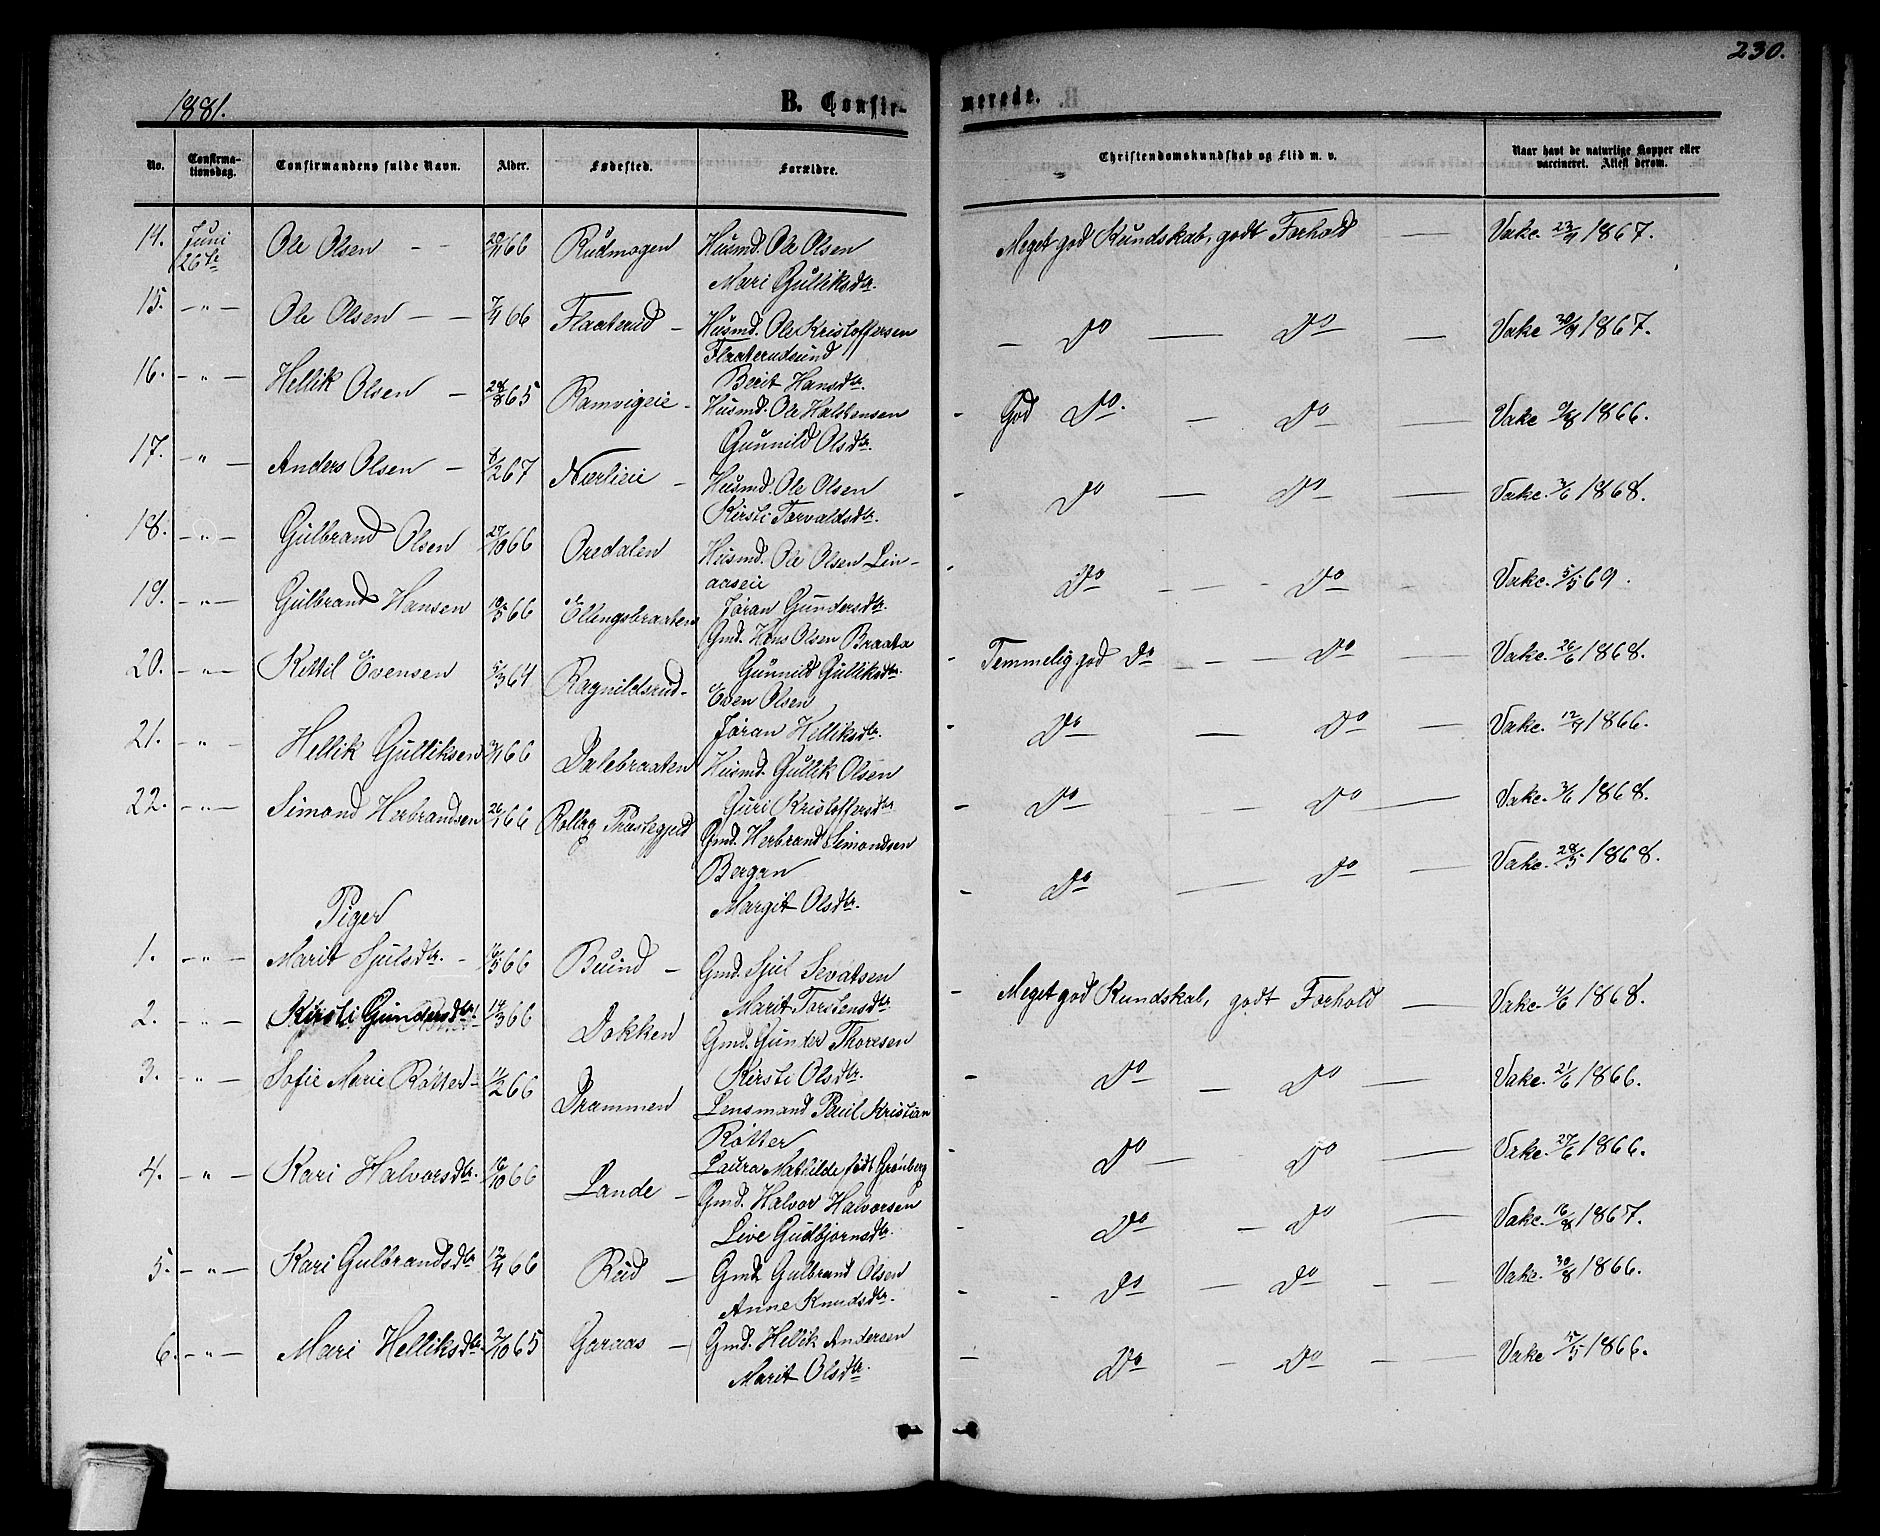 230.
1881.
B. Confir-
merede.
No.
Confirma-
tionsdag.
Confirmandens fulde Navn.
Alder.
Fødested.
Forældre.
Christendomskundskab og Flid m. v.
Naar havt de naturlige Kopper eller
vaccineret. Attest derom.
14. Juni 26de Ole Olsen - - 66 Rudmogen Husmd. Ole Olsen
Mari Gulliksdtr.
Meget god Kundskab, godt Forhold — Vakc. 1867.
15. - " - Ole Olsen - - 66 Flaaterud - Husmd. Ole Kristoffersen
Flaaterudsund
Berit Hansdtr.
- Do — Do — Vakc. 1867.
16. - " - Hellik Olsen - 28/8 65 Ramvigeie - Husmd. Ole Halstensen
Gunnild Olsdtr.
God Do. - Do — Vakc 1866.
17. - " - Anders Olsen - 8/2 67 Nærlieie - Husmd. Ole Olsen
Kirsti Torvaldsdtr.
Do — Do — Vakc. 3/6 1868.
18. - " - Gulbrand Olsen 27/10 66 Oredalen Husmd. Ole Olsen Lin-
aaseie
Jøran Gundersdtr.
Do - - - Do - Vakc. 5/5 69.
19. - " - Gulbrand Hansen 66 Ellingsbraaten Gmd. Hans Olsen Braata
Gunnild Gulliksdtr.
Temmelig god Do - - - Do — Vakc. 26/6 1868.
20. - " - Kittil Evensen 5/3 64 Ragnildsrud - Even Olsen
Jøran Helliksdtr.
Do — Do — Vakc. 1866.
21. - " - Hellik Gulliksen 66 Dalebraaten Husmd. Gullik Olsen
Guri Kristoffersdtr
Do - Do — Vakc. 3/6 1868.
22. - " - Simond Herbrandsen 66 Rollag Præstegjeld Gmd. Herbrand Simondsen
Bergan
Margit Olsdtr.
Do — Do — Vakc. 28/5 1868.
Piger
1. - " - Marit Sjulsdtr. - 16/5 66 Buind - Gmd. Sjul Sevatsen
Marit Torstensdtr
Meget god Kundskab, godt Forhold — Vakc. 1868.
2. - " - Kirsti Gundersdtr 14/3 66 Dokken Gmd. Gunder Thoresen
Kirsti Olsdtr.
Do - Do — Vakc. 21/6 1866.
3. - " - Sofie Marie Røtter - 11/2 66 Drammen Lensmand Paul Kristian
Røtter
Laura Mathilde, født Grønberg
Do — Do — Vakc. 27/6 1866.
4. - " - Kari Halvorsdtr. 66 Lande - Gmd. Halvor Halvorsen
Live Gudbjørnsdtr.
Do - Do — Vakc. 16/8 1867.
5. - " - Kari Gulbrandsdtr 66 Rud - Gmd Gulbrand Olsen
Anne Knudsdtr.
Do — Do - - Vakc. 30/8 1866.
6. - " - Mari Helliksdtr. 2/10 65 Garaas - Gmd. Hellik Andersen
Marit Olsdtr.
Do - Do - — Vakc 1866.